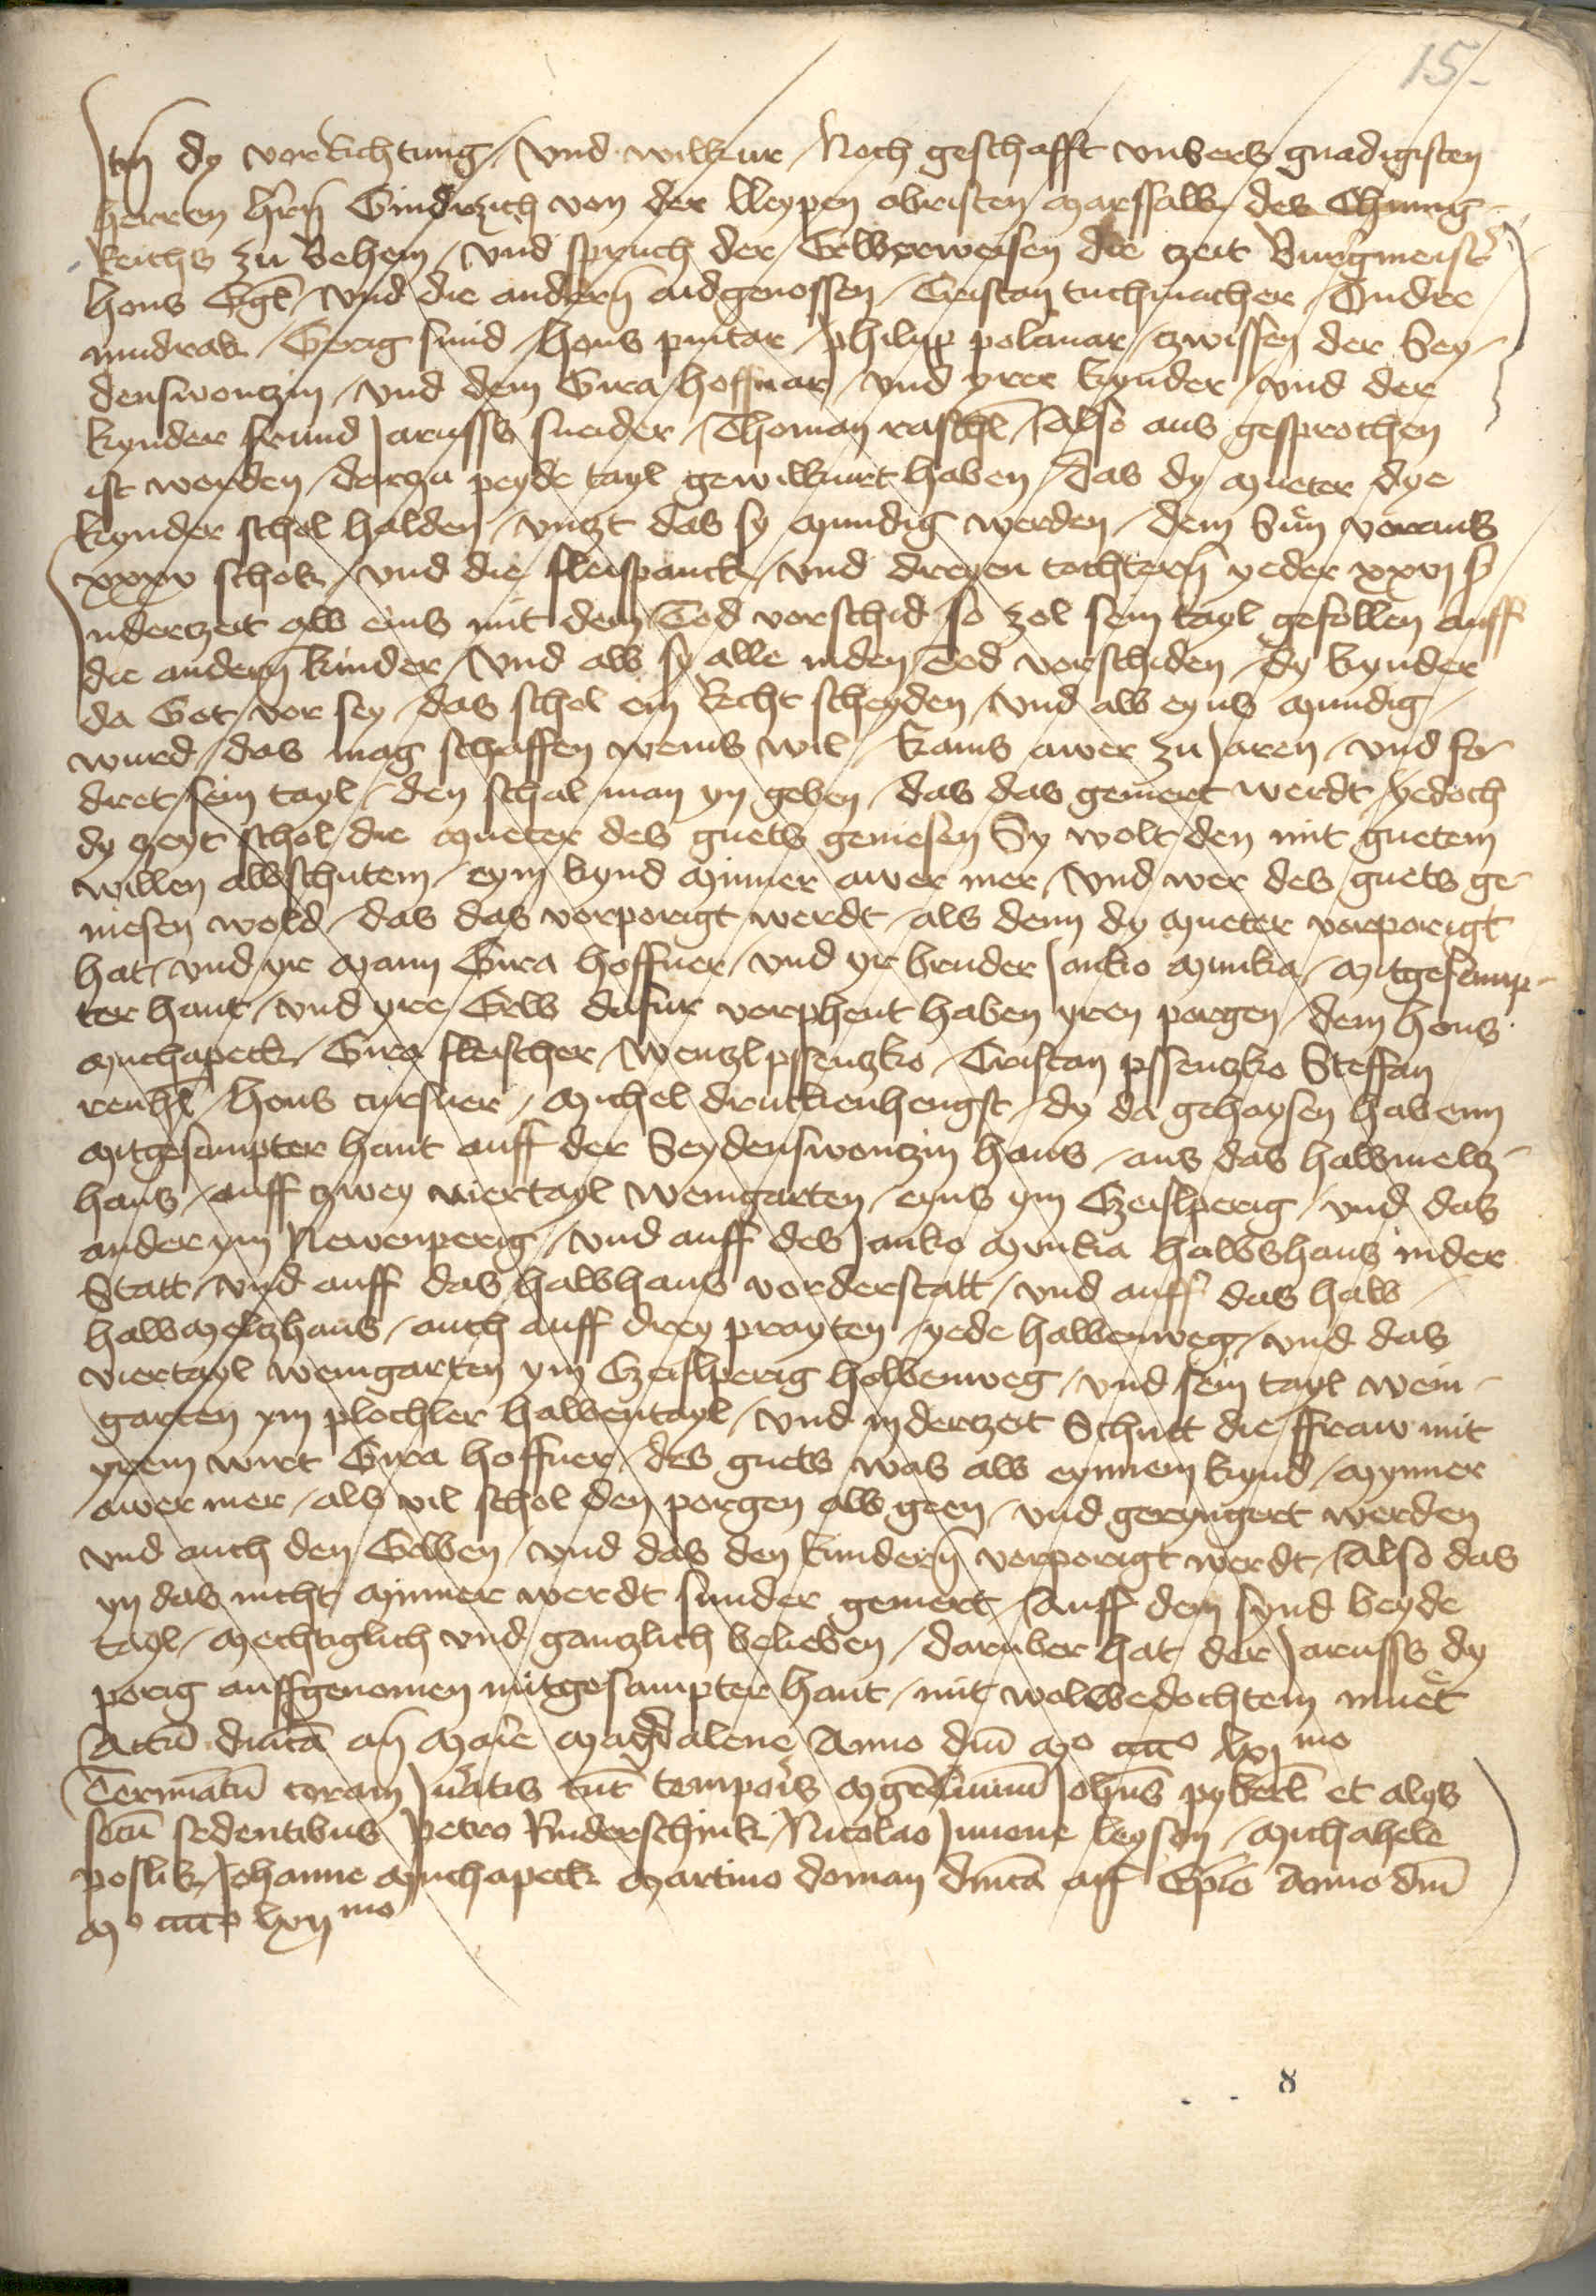 15
Itm̄ dy vorRichtung / vnd wilkur / Noch geschafft vnsers gnadigisten
herren hr̄n Gindrzich von der lleypen obristen Marssalk des Chunig
Reichs zu Behem / vnd spruch der Erberweisen die czeit Burgmeist̄
Hons Egl̄ / vnd die andern̄ aidgenossen / Cristan tuchmacher / Ondre
mudrak / Gerig smid / Hons pintar / philipp polanar / czwissen der Sey-
denswonczin / vnd dem Gira hoffnar / vnd yrer kynder / vnd der
kynder frund Jarusss sneider / Thoman raschl̄ / Also aus gesprochen
ist worden / darzu peyde tayl gewilkurt haben / das dy Mueter dye
kynder schol halden / vnczt das sy Mundig werden / dem Sun voraus
xxxv schok / vnd die fleispanck / vnd dreyen tochtern̄ yeder xxvj s̄
Indertzeit ab eins mit dem Tod vorschid so zol sein tayl gefollen auff
die andern̄ kinder / vnd ab sy alle inden Tod vorschiden / dy kynder
da Got vor sey / das schol ein Recht scheyden / vnd ab eyns Mundig
wurd / das mag schaffen wems wil / kams awer zu Jaren / vnd fo-
dret sein tayl / den schal man yn geben / das das gemert werdt / yedoch
dy czeyt schol die Mueter des guets geniesen Sy wolt den mit guetem
willen abschutem / eym kynd Minner awer mer / vnd wer des guets ge-
niesen wold / das das vorporigt werdt / als denn dy Mueter vorporigt
hat / vnd yr Mann Gira hoffner / vnd yr bruder Janko Munka / Mitgesamp-
ter hant / vnd yre Erb dafur vorphent haben yren porgen / dem Hons
Muchapeck / Gira fleischer / wenczl pssenczko / Cristan pssenczko Steffan
renhl̄ / Hons cursner / Michel druckenhengst / dy da gehaysen habenn
Mitgesampter hant auff der Seydenswonczin haus / aus das halbmelcz
haus / auff czwey viertayl weingarten / eyns ym Gzeislperig / vnd das
ander ym Newenperig / vnd auff des Janko Munka halbshaus inder
Statt / vnd auff das halbhaus vorderstatt / vnd auff das halb
halbMelczhaus / auch auff drey prayten / yede halbenweg / vnd das
viertayl weingarten ym Gzeislperig holbenweg / vnd sein tayl wein-
garten ym plochler halbentayl / vnd indertzeit Schutt die ffraw mit
yrem wirt Gira hoffner / des guets was ab eynnem kynd / Mynner
awer mer / als vil schol den porgen ab geen / vnd geryngert werden
vnd auch den Erben / vnd das den kindern̄ vorporigt werdt / Also das
yn das nicht Minner werdt sunder gemert / Auff dem synd beyde
tayl / Mechtiglich vnd ganczlich beliben / daruber hat der Jarusss dy
porig auffgenomen mitgesampter hant / mit wolbedochtem muet
Actū dn̄ica an̄ Marie Magdalene Anno dn̄i Mo cccco lxj mo
Termiatū coram Juratis tūc temporis Mgr̄ociuium John̄s pyberl̄ et alys
secū sedentibus Petro Rinderschink / Nicolao Simone leysen / Michahele
poslik / Johanne Muchapeck Martino doman dn̄ica an̄ Gpīo Anno dn̄i
Mo cccco lxij mo
8